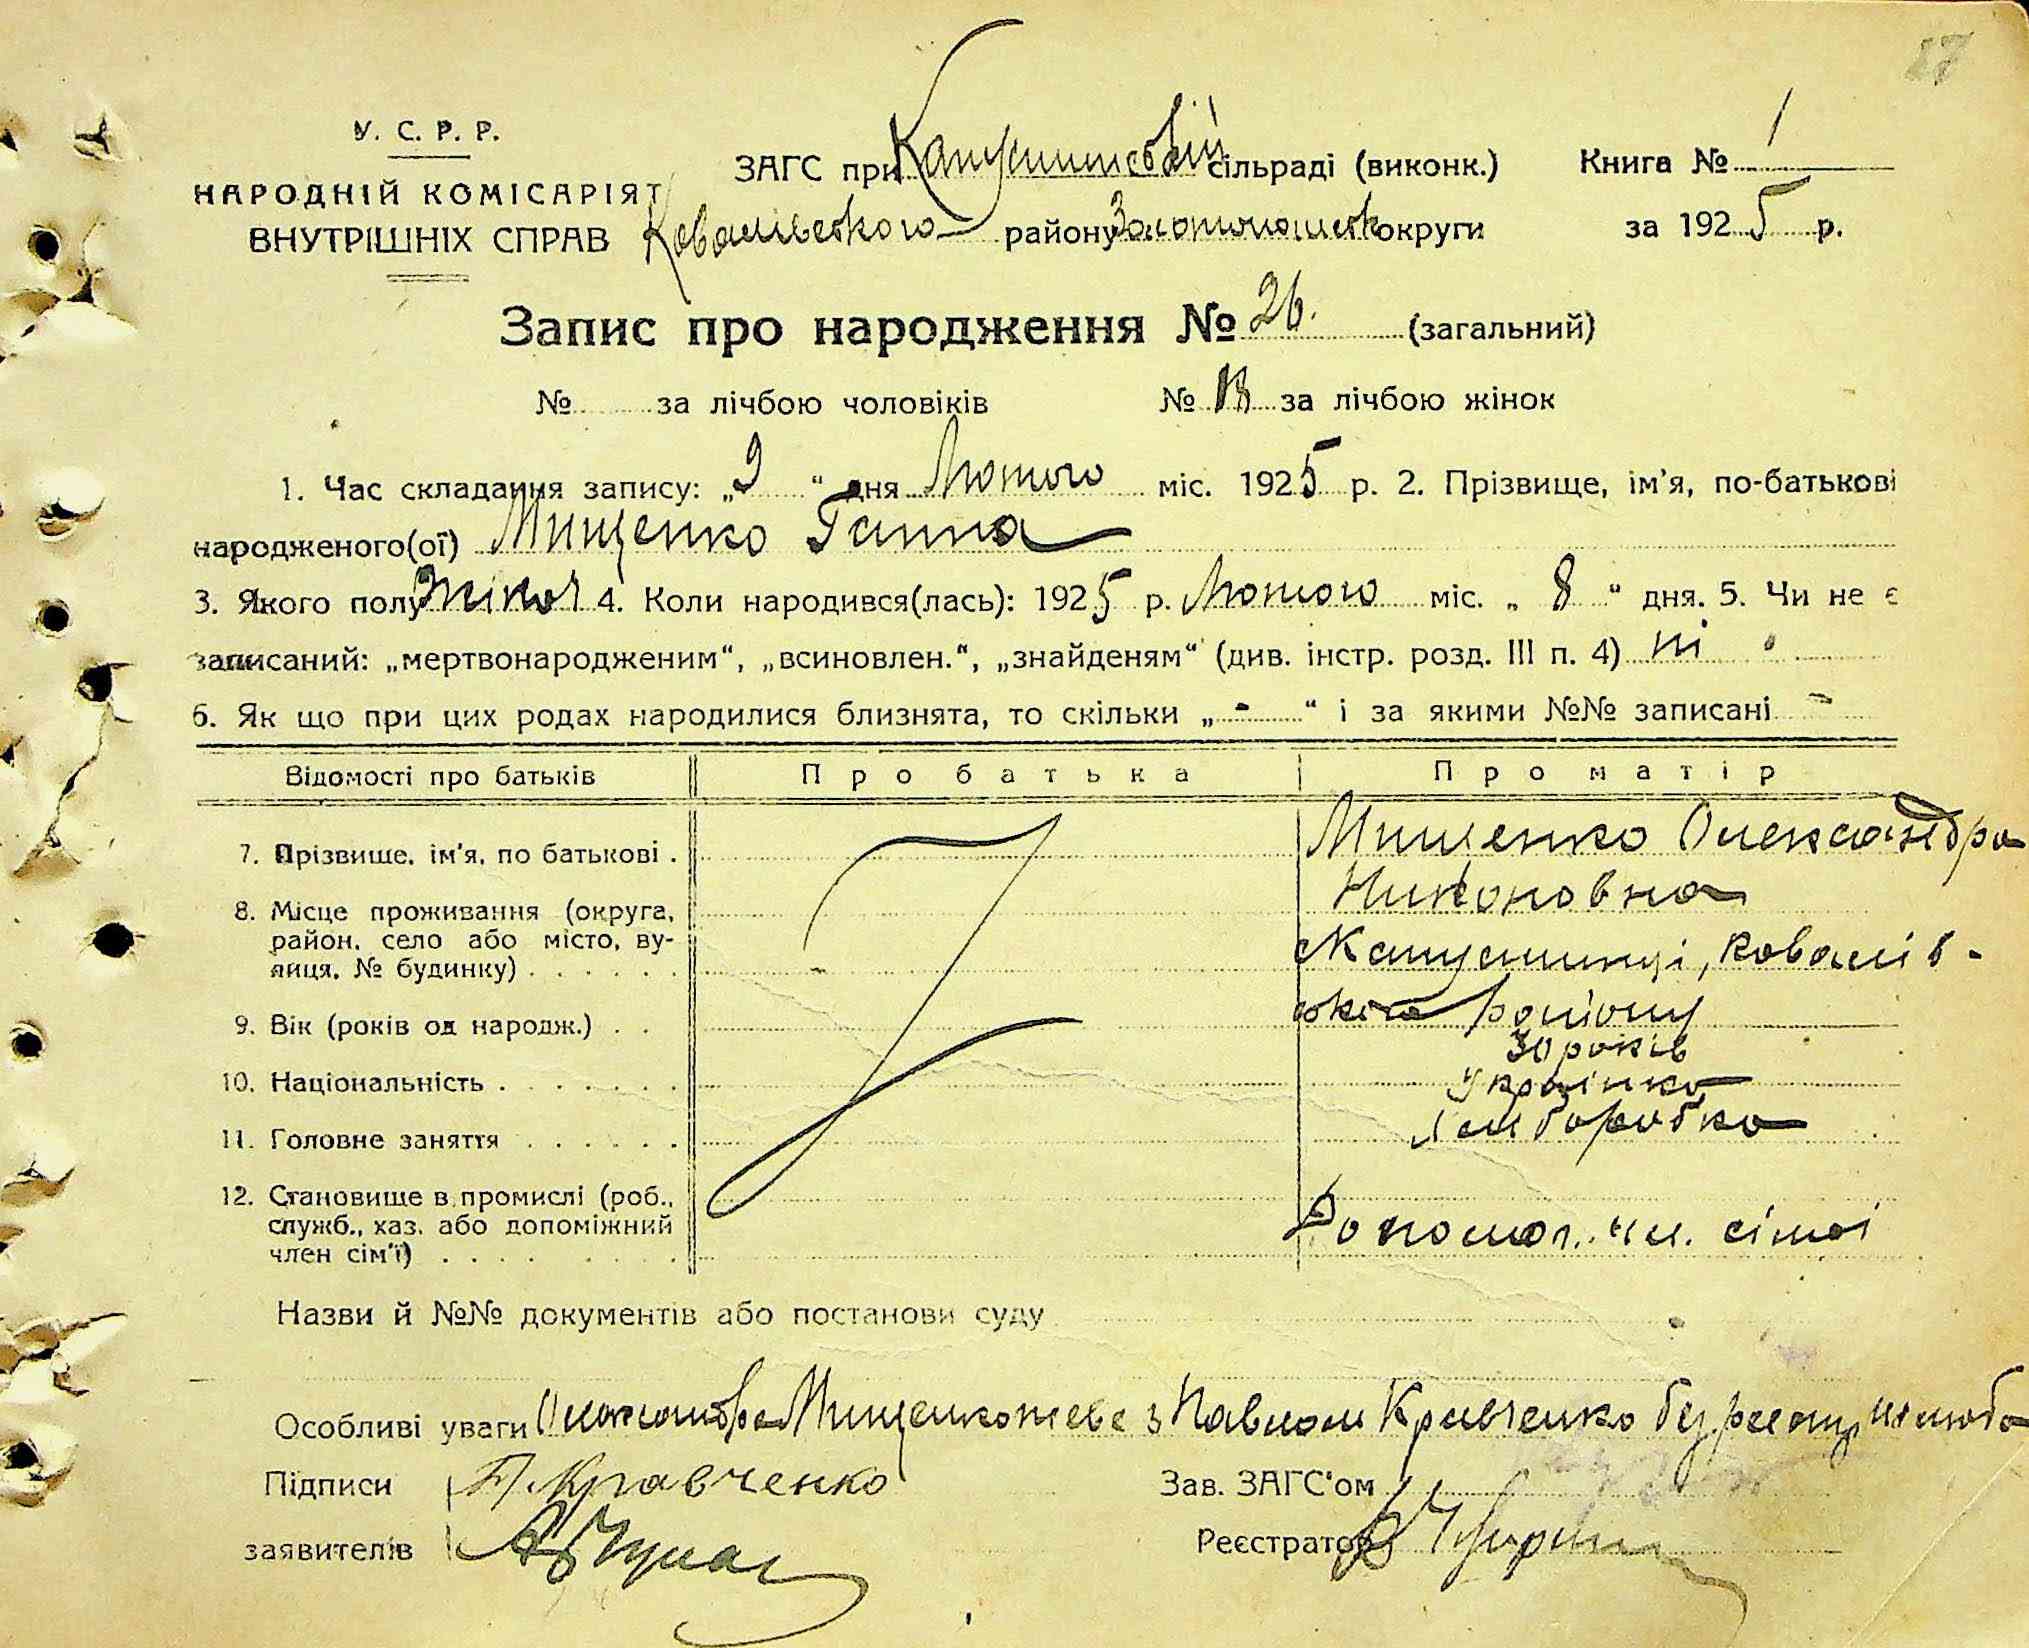 27
У. С. Р. Р.
НАРОДНІЙ КОМІСАРІЯТ
ВНУТРІШНІХ СПРАВ
ЗАГС при Капустинській сільраді (виконк.)
Ковалівського району Золотоношськ округи
Книга № 1
за 1925 р.
Запис про народження № 26. (загальний)
№ за лічбою чоловіків № 13 за лічбою жінок
1. Час складання запису: „9" дня Лютого міс. 1925 р. 2. Прізвище, ім'я, по-батькові
народженого(ої) Мищенко Ганна
3. Якого полу жіноч 4. Коли народився(лась): 1925 р. Лютого міс. „8" дня. 5. Чи не є
записаний: „мертвонародженим", „всиновлен.", „знайденям" (див. інстр. розд. III п. 4) ні
6. Як що при цих родах народилися близнята, то скільки „-" і за якими №№ записані -
Відомості про батьків Про батька Про матір
7. Прізвище, ім'я, по батькові . Мищенко Олександра
Никоновна
8. Місце проживання (округа,
район, село або місто, ву-
лиця, № будинку) . . . . . . Капустинці, Ковалів-
ського району
9. Вік (років од народж.) . . 30 років
10. Національність . . . . . . . Українка
11. Головне заняття . . . . . . Хліборобка
12. Становище в промислі (роб.,
служб., хаз. або допоміжний
член сім'ї) . . . . Допомог. чл. сімї
Назви й №№ документів або постанови суду
Особливі уваги Олександра Мищенко живе з Павлом Кравченко без реєстр. шлюба
Підписи П. Кравченко
заявителів
Зав. ЗАГС'ом
Реєстратор